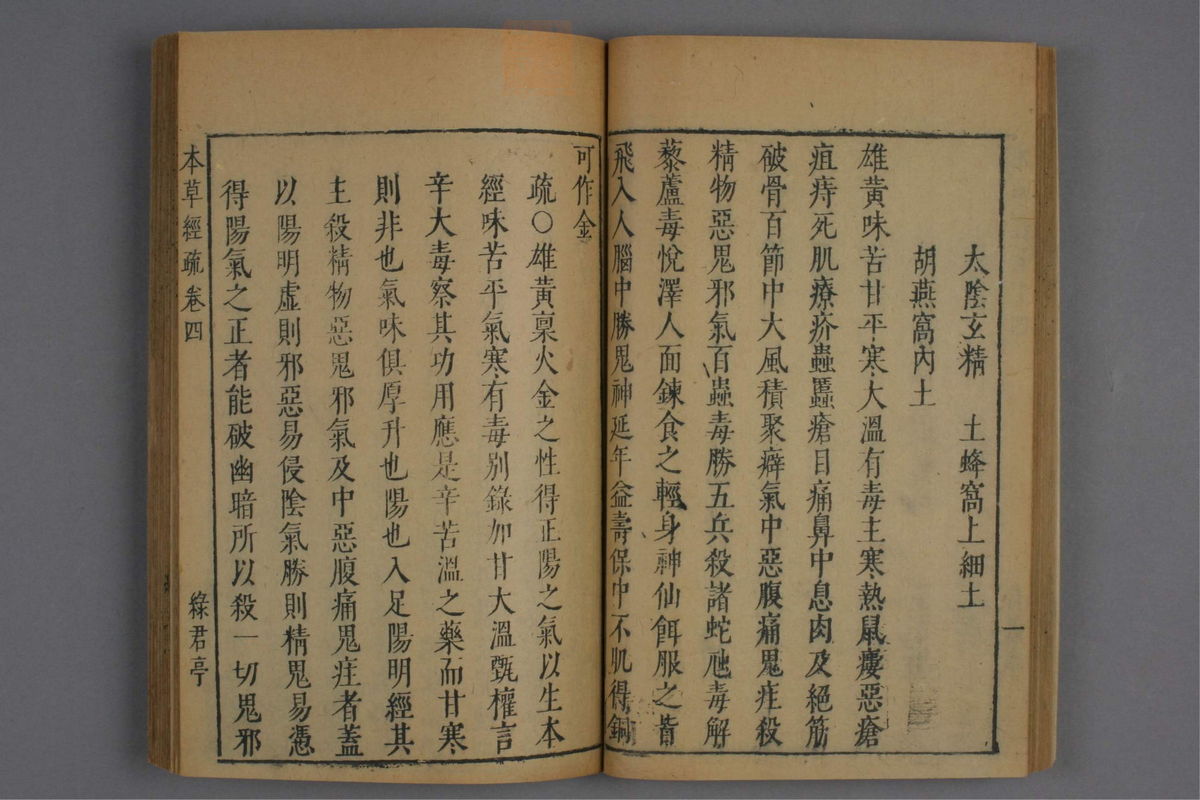 太陰玄精　土蜂窩上細土
胡燕窩內土
雄黃味苦甘平寒大溫有毒主寒熱鼠瘻惡瘡
疽痔死肌療疥蟲䘌瘡目痛鼻中息肉及絕筋
破骨百節中大風積聚癖氣中惡腹痛鬼疰殺
精物惡鬼邪氣百蟲毒勝五兵殺諸蛇虺毒解
藜蘆毒悅澤人面鍊食之輕身神仙餌服之皆
飛入人腦中勝鬼神延年益壽保中不肌得銅
可作金
疏○雄黃稟火金之性得正陽之氣以生本
經味苦平氣寒有毒別錄加甘大溫甄權言
辛大毒察其功用應是辛苦溫之藥而甘寒
則非也氣味俱厚升也陽也入足陽明經其
主殺精物惡鬼邪氣及中惡腹痛鬼疰者蓋
以陽明虛則邪惡易侵陰氣勝則精鬼易憑
得陽氣之正者能破幽暗所以殺一切鬼邪
本草經疏卷四
綠君亭
一